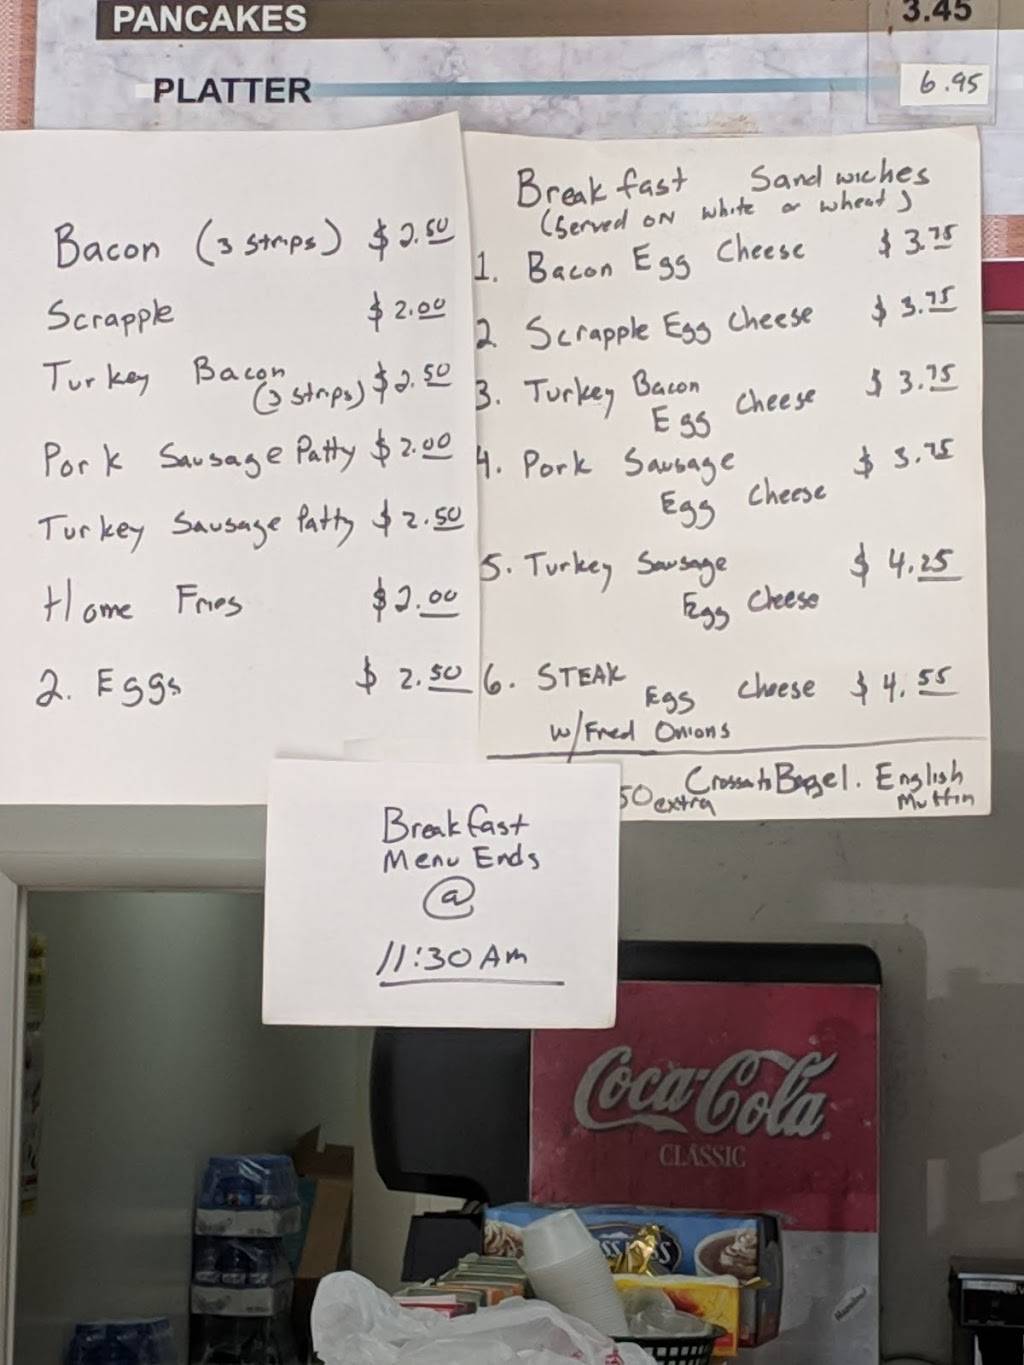 PANCAKES 3.45
PLATTER 6.95
Bacon (3 strips) $2.50
Scrapple $2.00
Turkey Bacon (3 strips) $2.50
Pork Sausage Patty $2.00
Turkey Sausage Patty $2.50
Home Fries $2.00
2. Eggs $2.50
Breakfast Sandwiches
(Served on white or wheat)
1. Bacon Egg Cheese $3.75
2 Scrapple Egg Cheese $3.75
3. Turkey Bacon
Egg Cheese $3.75
4. Pork Sausage $3.75
Egg Cheese
5. Turkey Sausage $4.25
Egg Cheese
6. STEAK Egg Cheese $4.55
w/Fried Onions
50 extra Bagel. English
Muffin
Breakfast
Menu Ends
@
11:30 Am
Coca-Cola
CLASSIC